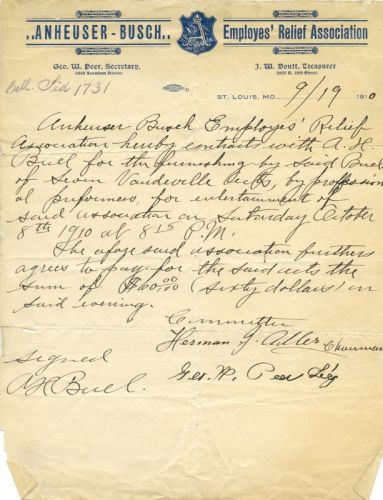 "ANHEUSER-BUSCH" Employes' Relief Association
Geo. W. Peer, Secretary. J. W. Doutt, Treasurer
Bell. Sid 1731
ST. LOUIS, MO. 9/19 1910
Anheuser Busch Employes' Relief
Association hereby contracts with A. H.
Buel for the furnishing by said Buel
of Seven Vaudeville acts, by profession
al preformers, for entertainment of
said association on Saturday October
8th 1910 at 8 15 P.M.
The afore said association further
agrees to pay for the said acts the
sum of $60.00 (sixty dollars) on
said evening.
Committee
Herman J. Adler Chairman
signed
A H Buel. Geo. W. Peer Sey